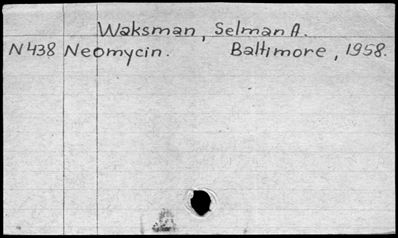 Waksman, Selman A.
N438 Neomycin. Baltimore, 1958.